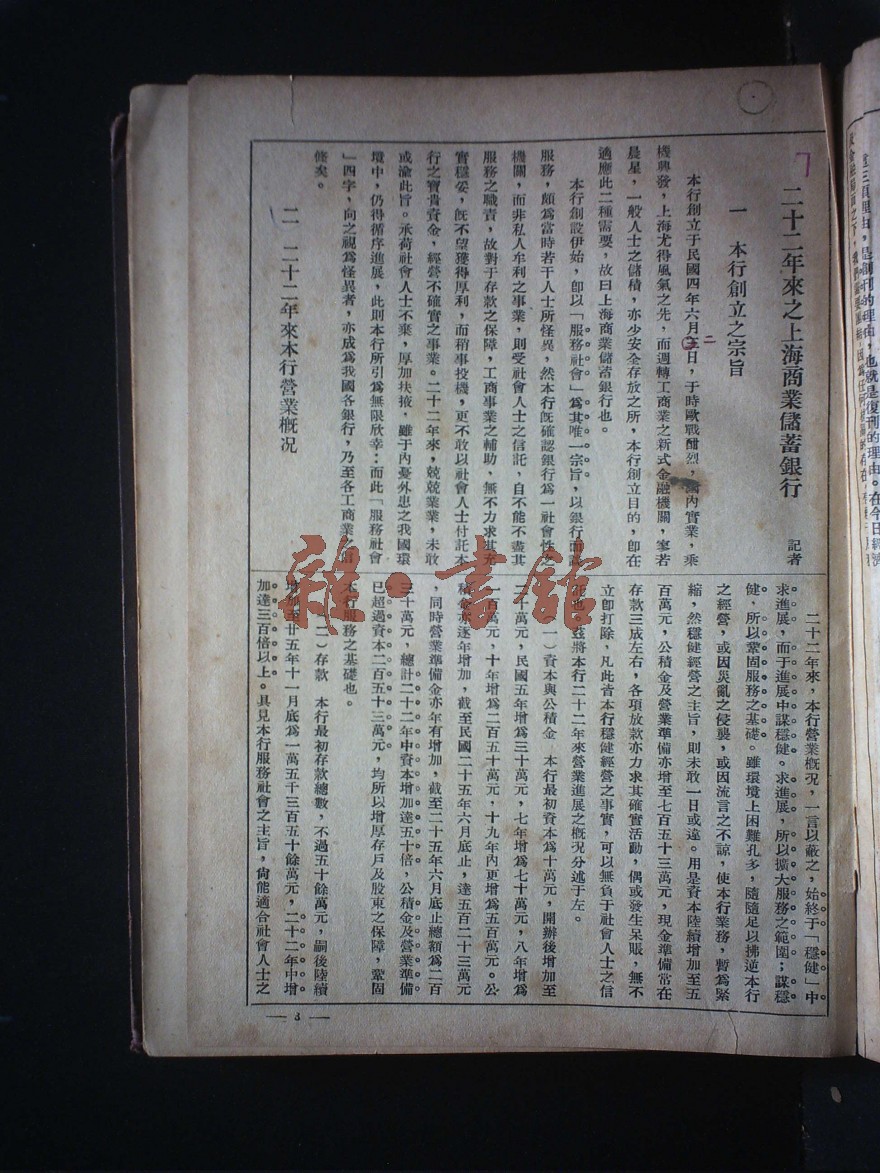 二十二年來之上海商業儲蓄銀行
記者
一 本行創立之宗旨
本行創立于民國四年六月三日,于時歐戰酣烈,國內實業,乘
二
機興發,上海尤得風氣之先,而週轉工商業之新式金融機關,寥若
晨星,一般人士之儲積,亦少安全存放之所,本行創立目的,卽在
適應此二種需要,故曰上海商業儲蓄銀行也。
本行創設伊始,卽以「服務社會」爲其唯一宗旨,以銀行而談
服務,頗爲當時若干人士所怪異,然本行旣確認銀行爲一社會性之
機關,而非私人牟利之事業,則受社會人士之信託,自不能不盡其
服務之職責,故對于存款之保障,工商事業之輔助,無不力求其充
實穩妥,旣不望獲得厚利,而稍事投機,更不敢以社會人士付託本
行之寶貴資金,經營不確實之事業。二十二年來,兢兢業業,未敢
或渝此旨。承荷社會人士不棄,厚加扶掖,雖于內憂外患之我國環
境中,仍得循序進展,此則本行所引爲無限欣幸;而此「服務社會
」四字,向之視爲怪異者,亦成爲我國各銀行,乃至各工商業之信
條矣。
二 二十二年來本行營業概况
二十二年來,本行營業概况,一言以蔽之,始終于「穩健」中
求進展,而于進展中謀穩健。求進展,所以擴大服務之範圍;謀穩
健,所以鞏固服務之基礎。雖環境上困難孔多,隨隨足以拂逆本行
之經營,或因災亂之侵襲,或因流言之不諒,使本行業務,暫爲緊
縮,然穩健經營之主旨,則未敢一日或違。用是資本陸續增加至五
百萬元,公積金及營業準備亦增至七百五十三萬元,現金準備常在
存款三成左右,各項放款亦力求其確實活動,偶或發生呆賬,無不
立卽打除,凡此皆本行穩健經營之事實,可以無負于社會人士之信
託也。茲將本行二十二年來營業進展之概况分述于左。
(一)資本與公積金 本行最初資本爲十萬元,開辦後增加至
二十萬元,民國五年增爲三十萬元,七年增爲七十萬元,八年增爲
一百萬元,十年增爲二百五十萬元,十九年內更增爲五百萬元。公
積金亦逐年增加,截至民國二十五年六月底止,達五百二十三萬元
,同時營業準備金亦年有增加,截至二十五年六月底止總額爲二百
三十萬元,總計二十二年中資本增加達五十倍,公積金及營業準備
已超過資本二百五十三萬元,均所以增厚存戶及股東之保障,鞏固
本行服務之基礎也。
(二)存款 本行最初存款總數,不過五十餘萬元,嗣後陸續
增加至廿五年十一月底爲一萬五千三百五十餘萬元,二十二年中增
加達三百倍以上。具見本行服務社會之主旨,尙能適合社會人士之
— 3 —
雜·書館